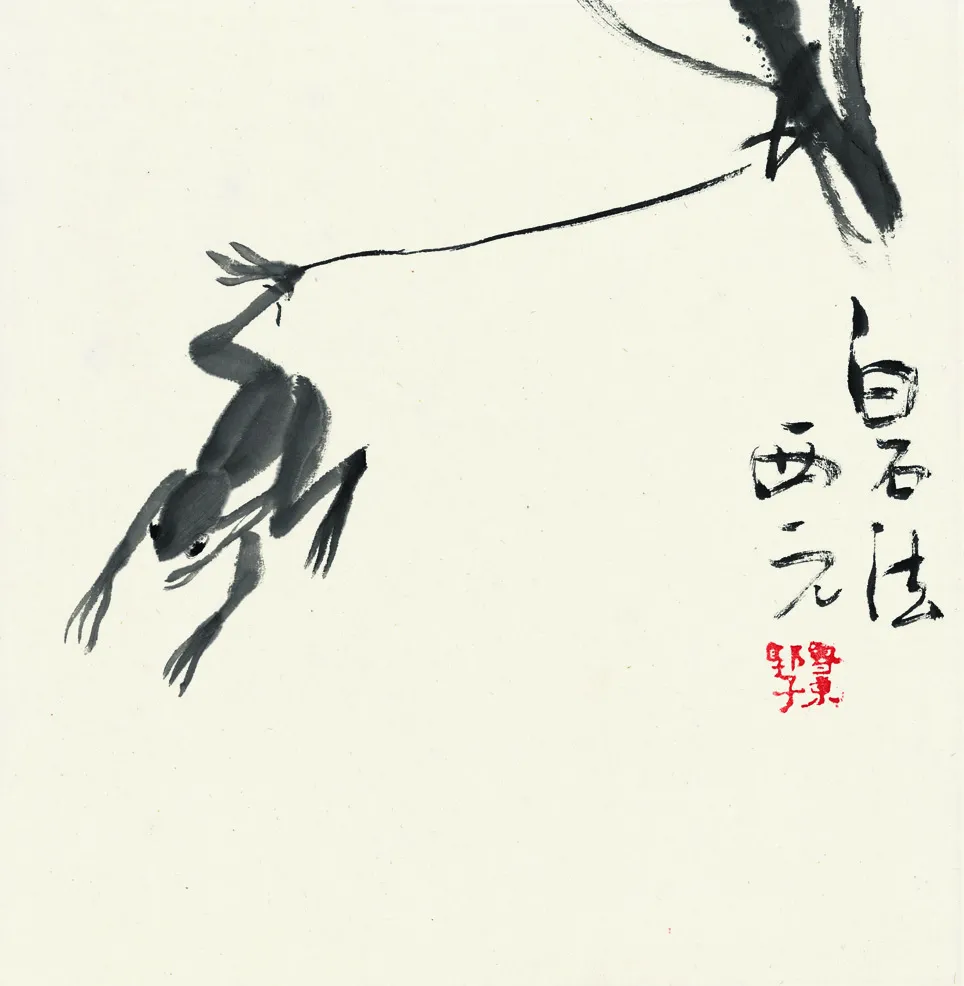 白石法
西元
魯東
野子